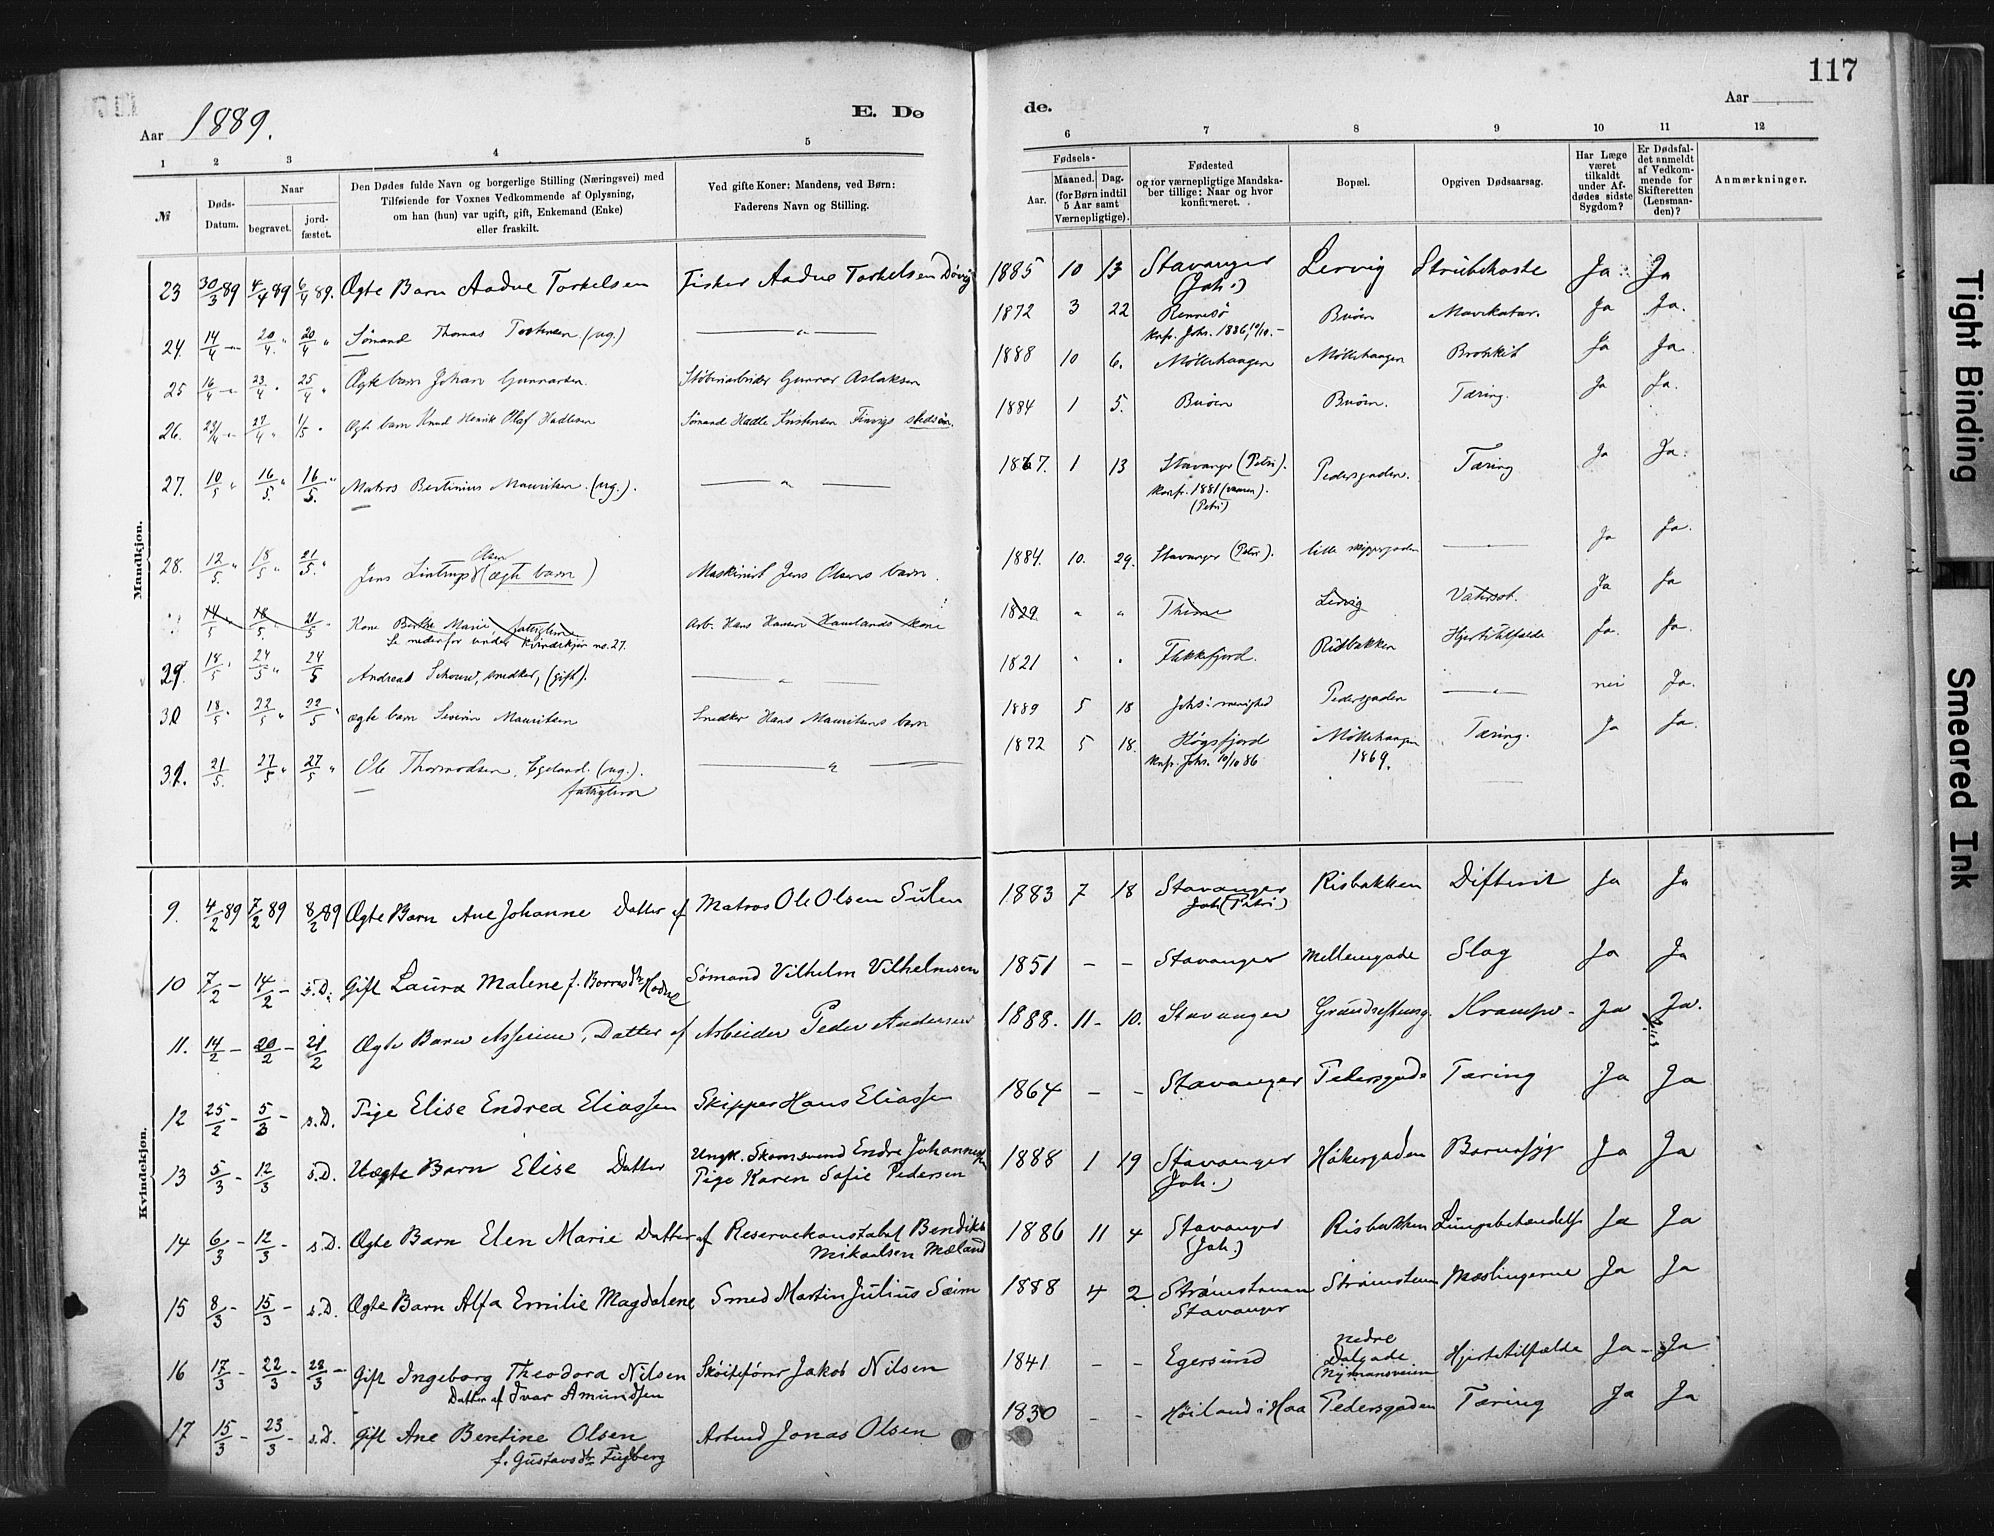 117
Aar 1889.
E. Dø
de.
Aar
1 2 3 4 5
6 7 8 9 10 11 12
№
Døds-Datum.
Naar
begravet.
jord-fæstet.
Den Dødes fulde Navn og borgerlige Stilling (Næringsvei) med
Tilføiende for Voxnes Vedkommende af Oplysning,
om han (hun) var ugift, gift, Enkemand (Enke)
eller fraskilt.
Ved gifte Koner: Mandens, ved Børn:
Faderens Navn og Stilling.
Fødsels-
Aar.
Maaned. Dag.
(for Børn indtil
5 Aar samt
Værnepligtige).
Fødested
og for værnepligtige Mandska-
ber tillige: Naar og hvor
konfirmeret.
Bopæl.
Opgiven Dødsaarsag.
Har Læge
været
tilkaldt
under Af-
dødes sidste
Sygdom?
Er Dødsfal-
det anmeldt
af Vedkom-
mende for
Skifteretten
(Lensman-
den)?
Anmærkninger.
Mandkjøn.
23 30/3 89 4/4 89 6/4 89. Ægte Barn Aadne Torkelsen Fisker Aadne Torkelsen Døvig 1885 10 13 Stavanger Lervig Strubehoste Ja Ja
(Joh.)
24. 14/4 — 20/4 " 20/4 " Sømand Thomas (ug.) — " — 1872 3 22 Rennesø Buøen Mavekatar. Ja Ja.
Knf. Johs. 1886, 10/10. –
25 16/4 — 23/4 " 25/4 " Ægte barn Johan Gunnarsen. Støberiarbeider Gunnar Aslaksen 1888 10 6. Møllehaugen Møllehaugen Bronkit Ja Ja.
26. 23/4 — 27/4 " 1/5 " Ægte barn Knud Henrik Olaf Hadlesen Sømand Hadle Kristensen Finvigs stedsøn. 1884 1 5. Buøen Buøen. Tæring. Ja Ja.
27. 10/5 " 16/5. " 16/5. " Matros Bertinius Mauritsen. (ug.). — " — 1867. 1 13 Stavanger (Petri). Pedersgaden. Tæring Ja Ja.
Konf. 1881 (vaaren).
(Petri)
28. 12/5 " 18/5 " 21/5. " Jens Lintrup (ægte barn) Maskinist Jens Olsens barn. 1884. 10. 29. Stavanger (Petri). lille skippergaden — Ja Ja.
Olsen
14/5 18/5 21/5 – Kone Berthe Marie fattiglem Arb. Hans Hansen Hamlands kone 1829. " " Thime Lervig Vatersot. Ja Ja
Se nedenfor under Kvindekjøn no. 27.
29. 18/5 " 24/5 " 24/5 Andreas Schouw, snedker, (gift). — " — 1821 " " Flekkefjord. Ridbakken Hjertetilfælde Ja. Ja.
30 18/5 " 22/5 " 22/5 " ægte barn Severin Mauritsen Snedker Hans Mauritsens barn 1889 5 18 Johs: menighed Pedersgaden — " — nei Ja.
31. 21/5. 27/5 " 27/5 " Ole Thormodsen. Egeland. (ug.). — " — 1872 5 18. Høgsfjord Møllehaugen Tæring. Ja Ja.
fattiglem Knf. Johs. 10/10 86 1869.
Kvindekjøn.
9. 4/2 89 7/2 89 8/2 89 Ægte Barn Ane Johanne Datter af Matros Ole Olsen Sulen 1883 7 18 Stavanger Risbakken Difterit Ja Ja
Joh (Petri)
10 7/2 – 14/2 – s.D. Gift Laura Malene f. Hodne Sømand Vilhelm Vilhelmsen 1851 – – Stavanger Mellemgade Slag Ja Ja
11. 14/2 – 20/2 – 21/2 Ægte Barn Asserine, Datter af Arbeider Peder Andersen 1888. 11 – 10. Stavanger Krampe – Ja Ja.
12 25/2 – 5/3 – s.D. Pige Elise Endrea Eliassen Skipper Hans Eliassen 1864 – – Stavanger Pedersgade Tæring Ja Ja
13 5/3 – 12/3 s.D. Uægte Barn Elise Datter Ungk. Skomsvend Endre Johannessen 1888 1 19 Stavanger Høkergaden Barnesyg Ja Ja
Pige Karen Sofie Pedersen (Joh.)
14 6/3 – 12/3 – s.D. Ægte Barn Elen Marie Datter af Reservekonstabel Bendikt 1886 11 4 Stavanger Risbakken Lungebetændelse Ja Ja
Mikaelsen Mæland (Joh.)
15 8/3 – 15/3 – s.D. Ægte Barn Alfa Emilie Magdalene Smed Martin Julius Seim 1888 4 2 Strømstenen Strømstenen Mæslingerne Ja Ja
Stavanger
16 17/3 – 22/3 – 28/3 – Gift Ingeborg Theodora Nilsen Skøitefører Jakob Nilsen 1841 – – Egersund Nedre Dalgade (Nymansveien Hjertetilfælde Ja – Ja
Datter af Ivar Amundsen
17 15/3 – 23/3 – s.D. Gift Ane Bentine Olsen Arbeid Jonas Olsen 1830 – – Høiland i Haa Pedersgaden Tæring Ja Ja
f. Gustavsdtr Fuglberg
Tight Binding
Smeared Ink